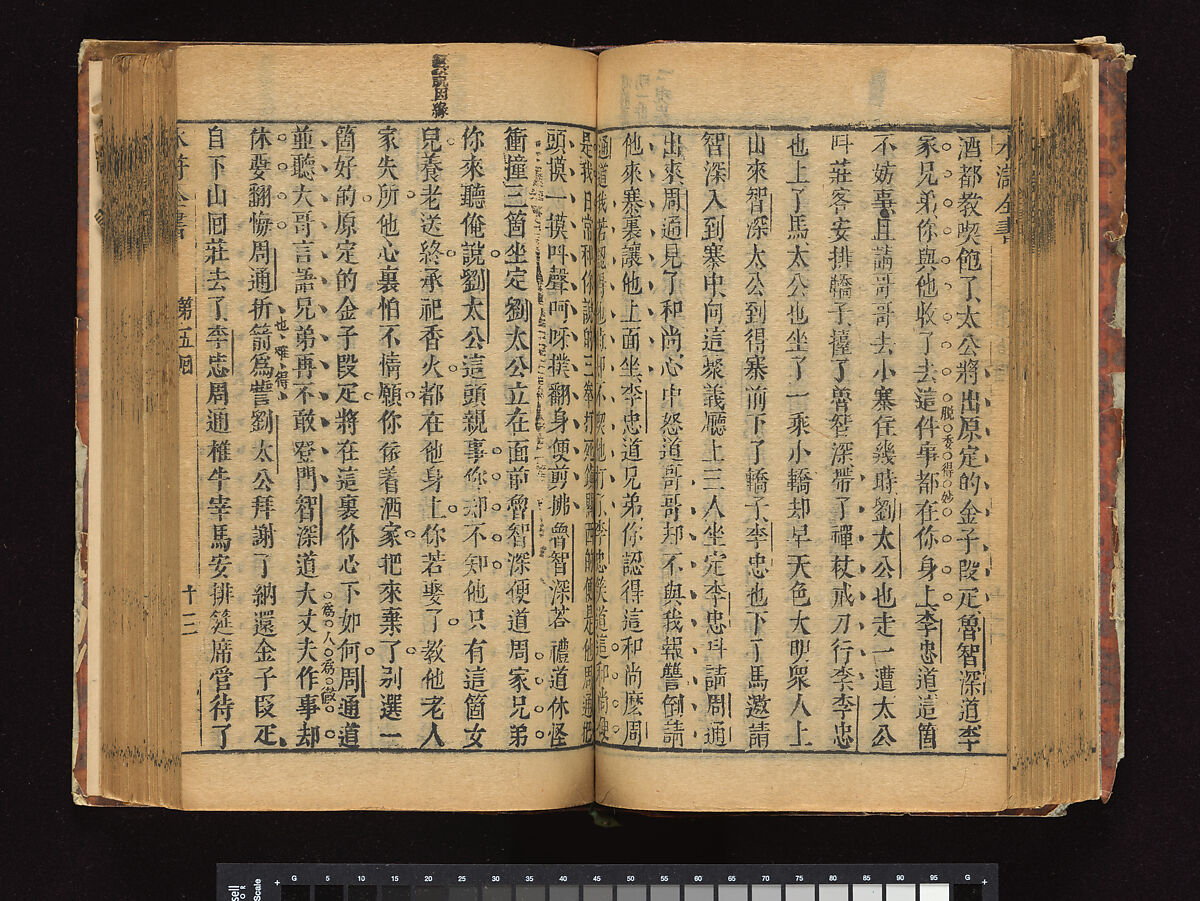 水滸全書
酒都教喫飽了太公將出原定的金子段疋魯智深道李
家兄弟你與他收了去這件事都在你身上李忠道這箇
脫委得妙
不妨事且請哥哥去小寨住幾時劉太公也走一遭太公
叫莊客安排轎子擡了魯智深帶了禪杖戒刀行李李忠
也上了馬太公也坐了一乘小轎却早天色大明衆人上
山來智深太公到得寨前下了轎子李忠也下了馬邀請
智深入到寨中向這聚義廳上三人坐定李忠叫請周通
出來周通見了和尚心中怒道哥哥却不與我報讐倒請
他來寨裏讓他上面坐李忠道兄弟你認得這和尚麽周
通道我若認得他時却不喫他打了李忠笑道這和尚便
是我日常和你說的三拳打死鎮關西的便是他周通把
頭摸一摸叫聲呵呀撲翻身便剪拂魯智深荅禮道休怪
衝撞三箇坐定劉太公立在面前魯智深便道周家兄弟
你來聽俺說劉太公這頭親事你却不知他只有這箇女
兒養老送終承祀香火都在他身上你若娶了教他老人
家失所他心裏怕不情願你依着洒家把來棄了别選一
箇好的原定的金子段疋將在這裏你心下如何周通道
並聽大哥言語兄弟再不敢登門智深道大丈夫作事却
爲人爲徹
休要翻悔周通折箭爲誓劉太公拜謝了納還金子段疋
也難得
自下山囘莊去了李忠周通椎牛宰馬安排筵席管待了
第五囘
十三
Scale
G 5 10 15 20 25 30 35 40 45 50 55 60 65 70 75 80 85 90 95 G